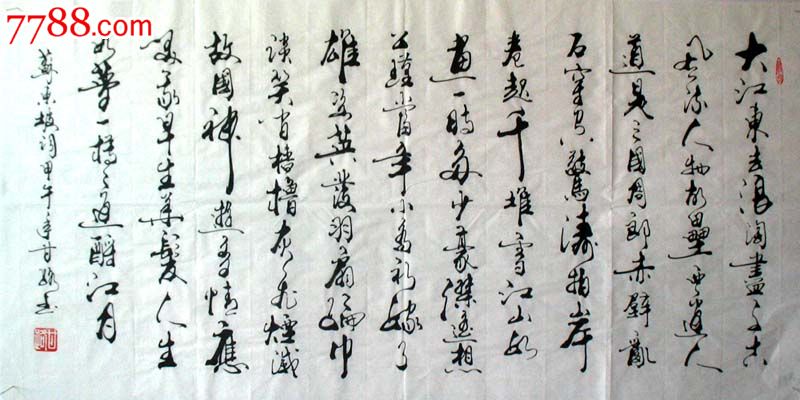 7788.com
大江東去浪淘盡千古
風流人物故壘西邊人
道是三國周郎赤壁亂
石穿空驚濤拍岸
卷起千堆雪江山如
畫一時多少豪傑遙想
公瑾當年小喬初嫁了
雄姿英發羽扇綸巾
談笑間檣櫓灰飛煙滅
故國神遊多情應
笑我早生華髮人生
如夢一樽還酹江月
蘇東坡詞甲午年甘書